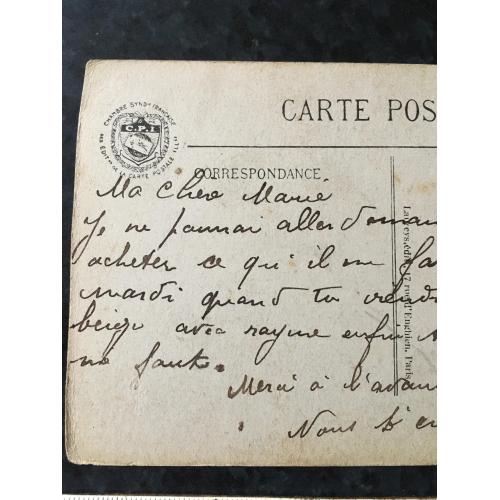 CHAMBRE SYND^le FRANÇAISE
DES EDIT^rs DE LA CARTE POSTALE ILL^ée
C.P.I.
CARTE POS
CORRESPONDANCE
Ma chère Marie
Je ne pourrai aller demain
acheter ce qu'il me fa
mardi quand tu viend
beige avec rayure enfin
me faut.
Merci à l'avan
Nous t'em
édit. 17 rue d'Enghien, Paris